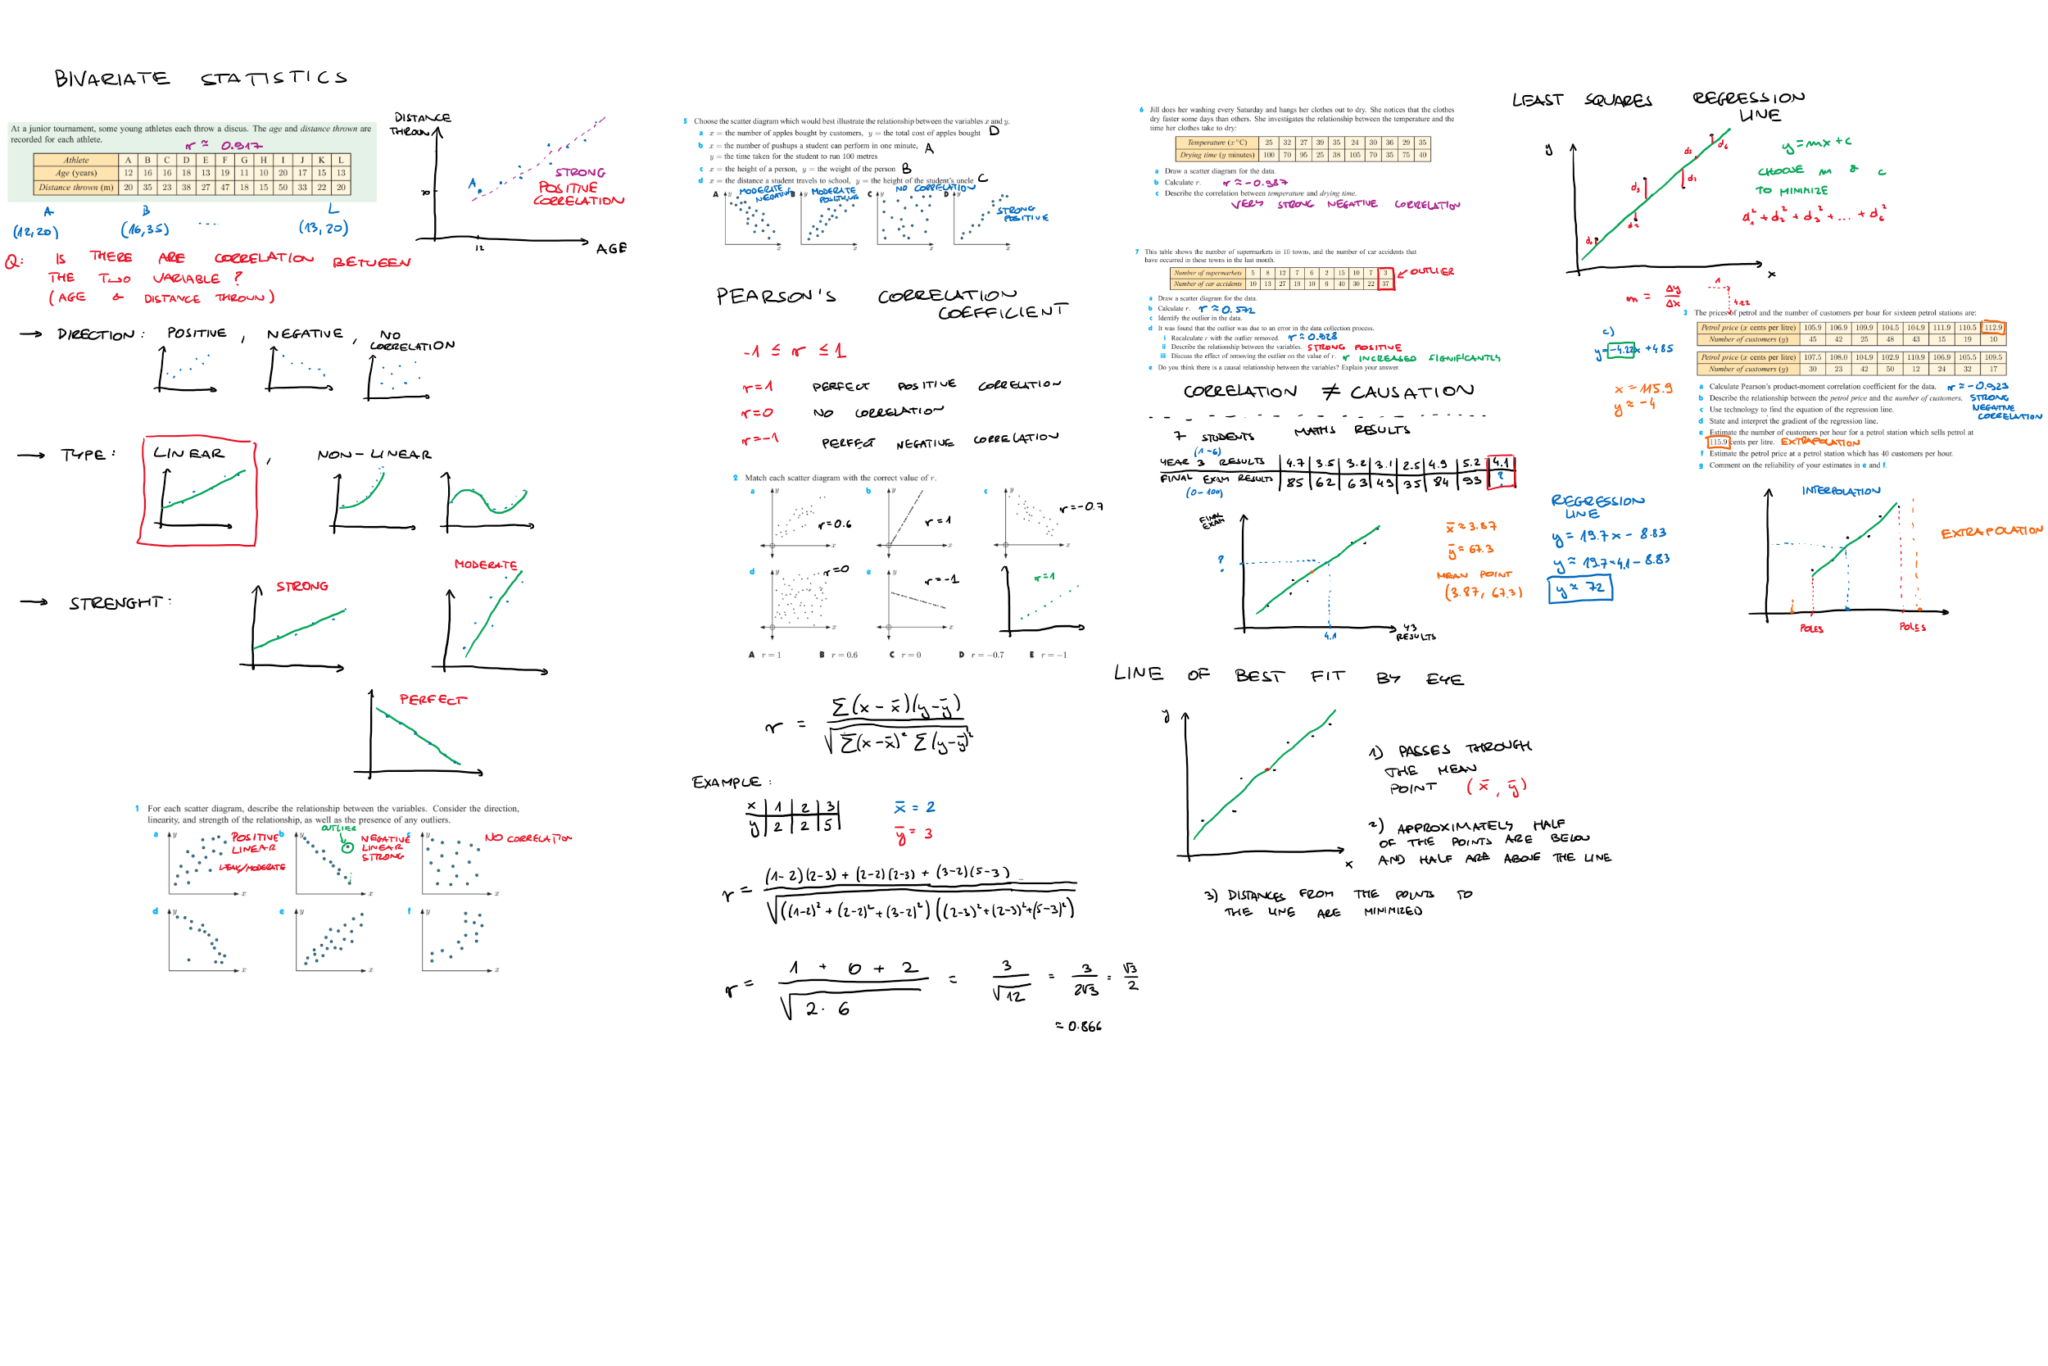 BIVARIATE STATISTICS
At a junior tournament, some young athletes each throw a discus. The age and distance thrown are
recorded for each athlete.
r ≈ 0.917
Athlete A B C D E F G H I J K L
Age (years) 12 16 16 18 13 19 11 10 20 17 15 13
Distance thrown (m) 20 35 23 38 27 47 18 15 50 33 22 20
A B L
(12,20) (16,35) ... (13,20)
DISTANCE
THROWN
20
A
STRONG
POSITIVE
CORRELATION
12
AGE
Q: IS THERE ARE CORRELATION BETWEEN
THE TWO VARIABLE ?
(AGE & DISTANCE THROWN)
→ DIRECTION: POSITIVE, NEGATIVE, NO
CORRELATION
→ TYPE: LINEAR, NON-LINEAR
→ STRENGHT:
STRONG
MODERATE
PERFECT
1 For each scatter diagram, describe the relationship between the variables. Consider the direction,
linearity, and strength of the relationship, as well as the presence of any outliers.
a y x POSITIVE
LINEAR
WEAK/MODERATE
b y x OUTLIER
NEGATIVE
LINEAR
STRONG
c y x NO CORRELATION
d y x
e y x
f y x
5 Choose the scatter diagram which would best illustrate the relationship between the variables x and y.
a x = the number of apples bought by customers, y = the total cost of apples bought D
b x = the number of pushups a student can perform in one minute, A
y = the time taken for the student to run 100 metres
c x = the height of a person, y = the weight of the person B
d x = the distance a student travels to school, y = the height of the student's uncle C
A y x MODERATE
NEGATIVE
B y x MODERATE
POSITIVE
C y x NO CORRELATION
D y x STRONG
POSITIVE
PEARSON'S CORRELATION
COEFFICIENT
-1 ≤ r ≤ 1
r=1 PERFECT POSITIVE CORRELATION
r=0 NO CORRELATION
r=-1 PERFECT NEGATIVE CORRELATION
2 Match each scatter diagram with the correct value of r.
a y x r=0.6
b y x r=1
c y x r=-0.7
d y x r=0
e y x r=-1
r=1
A r = 1 B r = 0.6 C r = 0 D r = −0.7 E r = −1
r = Σ(x - x̄)(y - ȳ) / √Σ(x - x̄)² Σ(y - ȳ)²
EXAMPLE:
x 1 2 3
y 2 2 5
x̄ = 2
ȳ = 3
r = (1-2)(2-3) + (2-2)(2-3) + (3-2)(5-3) / √((1-2)² + (2-2)² + (3-2)²)((2-3)² + (2-3)² + (5-3)²)
r = 1 + 0 + 2 / √2·6 = 3/√12 = 3/2√3 = √3/2
≈ 0.866
6 Jill does her washing every Saturday and hangs her clothes out to dry. She notices that the clothes
dry faster some days than others. She investigates the relationship between the temperature and the
time her clothes take to dry:
Temperature (x °C) 25 32 27 39 35 24 30 36 29 35
Drying time (y minutes) 100 70 95 25 38 105 70 35 75 40
a Draw a scatter diagram for the data.
b Calculate r. r ≈ -0.987
c Describe the correlation between temperature and drying time.
VERY STRONG NEGATIVE CORRELATION
7 This table shows the number of supermarkets in 10 towns, and the number of car accidents that
have occurred in these towns in the last month.
Number of supermarkets 5 8 12 7 6 2 15 10 7 3
Number of car accidents 10 13 27 19 10 6 40 30 22 37
← OUTLIER
a Draw a scatter diagram for the data.
b Calculate r. r ≈ 0.572
c Identify the outlier in the data.
d It was found that the outlier was due to an error in the data collection process.
i Recalculate r with the outlier removed. r ≈ 0.928
ii Describe the relationship between the variables. STRONG POSITIVE
iii Discuss the effect of removing the outlier on the value of r. r INCREASED SIGNIFICANTLY
e Do you think there is a causal relationship between the variables? Explain your answer.
CORRELATION ≠ CAUSATION
7 STUDENTS MATHS RESULTS
(1-6)
YEAR 3 RESULTS 4.7 3.5 3.2 3.1 2.5 4.9 5.2 4.1
FINAL EXAM RESULTS 85 62 63 49 35 84 93 ?
(0-100)
FINAL
EXAM
?
4.1
Y3
RESULTS
x̄ ≈ 3.87
ȳ = 67.3
MEAN POINT
(3.87, 67.3)
REGRESSION
LINE
y = 19.7x - 8.83
y = 19.7*4.1 - 8.83
y ≈ 72
LINE OF BEST FIT BY EYE
y
x
1) PASSES THROUGH
THE MEAN
POINT (x̄, ȳ)
2) APPROXIMATELY HALF
OF THE POINTS ARE BELOW
AND HALF ARE ABOVE THE LINE
3) DISTANCES FROM THE POINTS TO
THE LINE ARE MINIMIZED
LEAST SQUARES REGRESSION
LINE
y
x
d₁ d₂ d₃ d₄ d₅ d₆
y = mx + c
CHOOSE m & c
TO MINIMIZE
d₁² + d₂² + d₃² + ... + d₆²
m = Δy/Δx
1
4.22
3 The prices of petrol and the number of customers per hour for sixteen petrol stations are:
Petrol price (x cents per litre) 105.9 106.9 109.9 104.5 104.9 111.9 110.5 112.9
Number of customers (y) 45 42 25 48 43 15 19 10
Petrol price (x cents per litre) 107.5 108.0 104.9 102.9 110.9 106.9 105.5 109.5
Number of customers (y) 30 23 42 50 12 24 32 17
a Calculate Pearson's product-moment correlation coefficient for the data. r ≈ -0.923
b Describe the relationship between the petrol price and the number of customers. STRONG
NEGATIVE
CORRELATION
c Use technology to find the equation of the regression line.
d State and interpret the gradient of the regression line.
e Estimate the number of customers per hour for a petrol station which sells petrol at
115.9 cents per litre. EXTRAPOLATION
f Estimate the petrol price at a petrol station which has 40 customers per hour.
g Comment on the reliability of your estimates in e and f.
c)
y = -4.22x + 485
x = 115.9
y ≈ -4
INTERPOLATION
EXTRAPOLATION
POLES
POLES